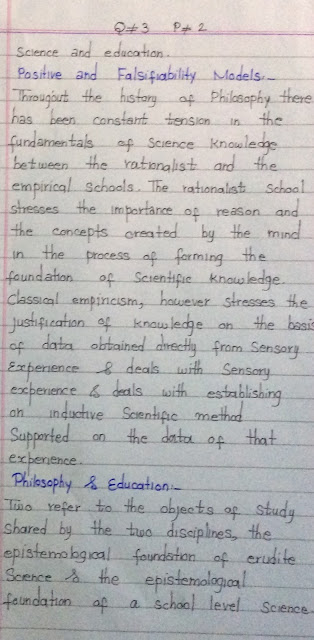 Q≠3 P≠2
Science and education.
Positive and Falsifiability Models:-
Througout the history of Philosophy there
has been constant tension in the
fundamentals of Science Knowledge
between the rationalist and the
empirical schools. The rationalist school
stresses the importance of reason and
the concepts created by the mind
in the process of forming the
foundation of Scientific Knowledge.
Classical empiricism, however stresses the
justification of Knowledge on the basis
of data obtained directly from Sensory
Experience & deals with Sensory
experience & deals with establishing
on inductive Scientific method
Supported on the data of that
experience.
Philosophy & Education:-
Two refer to the objects of Study
shared by the two disciplines, the
epistemological foundation of erudite
Science & the epistemological
foundation of a school level Science.